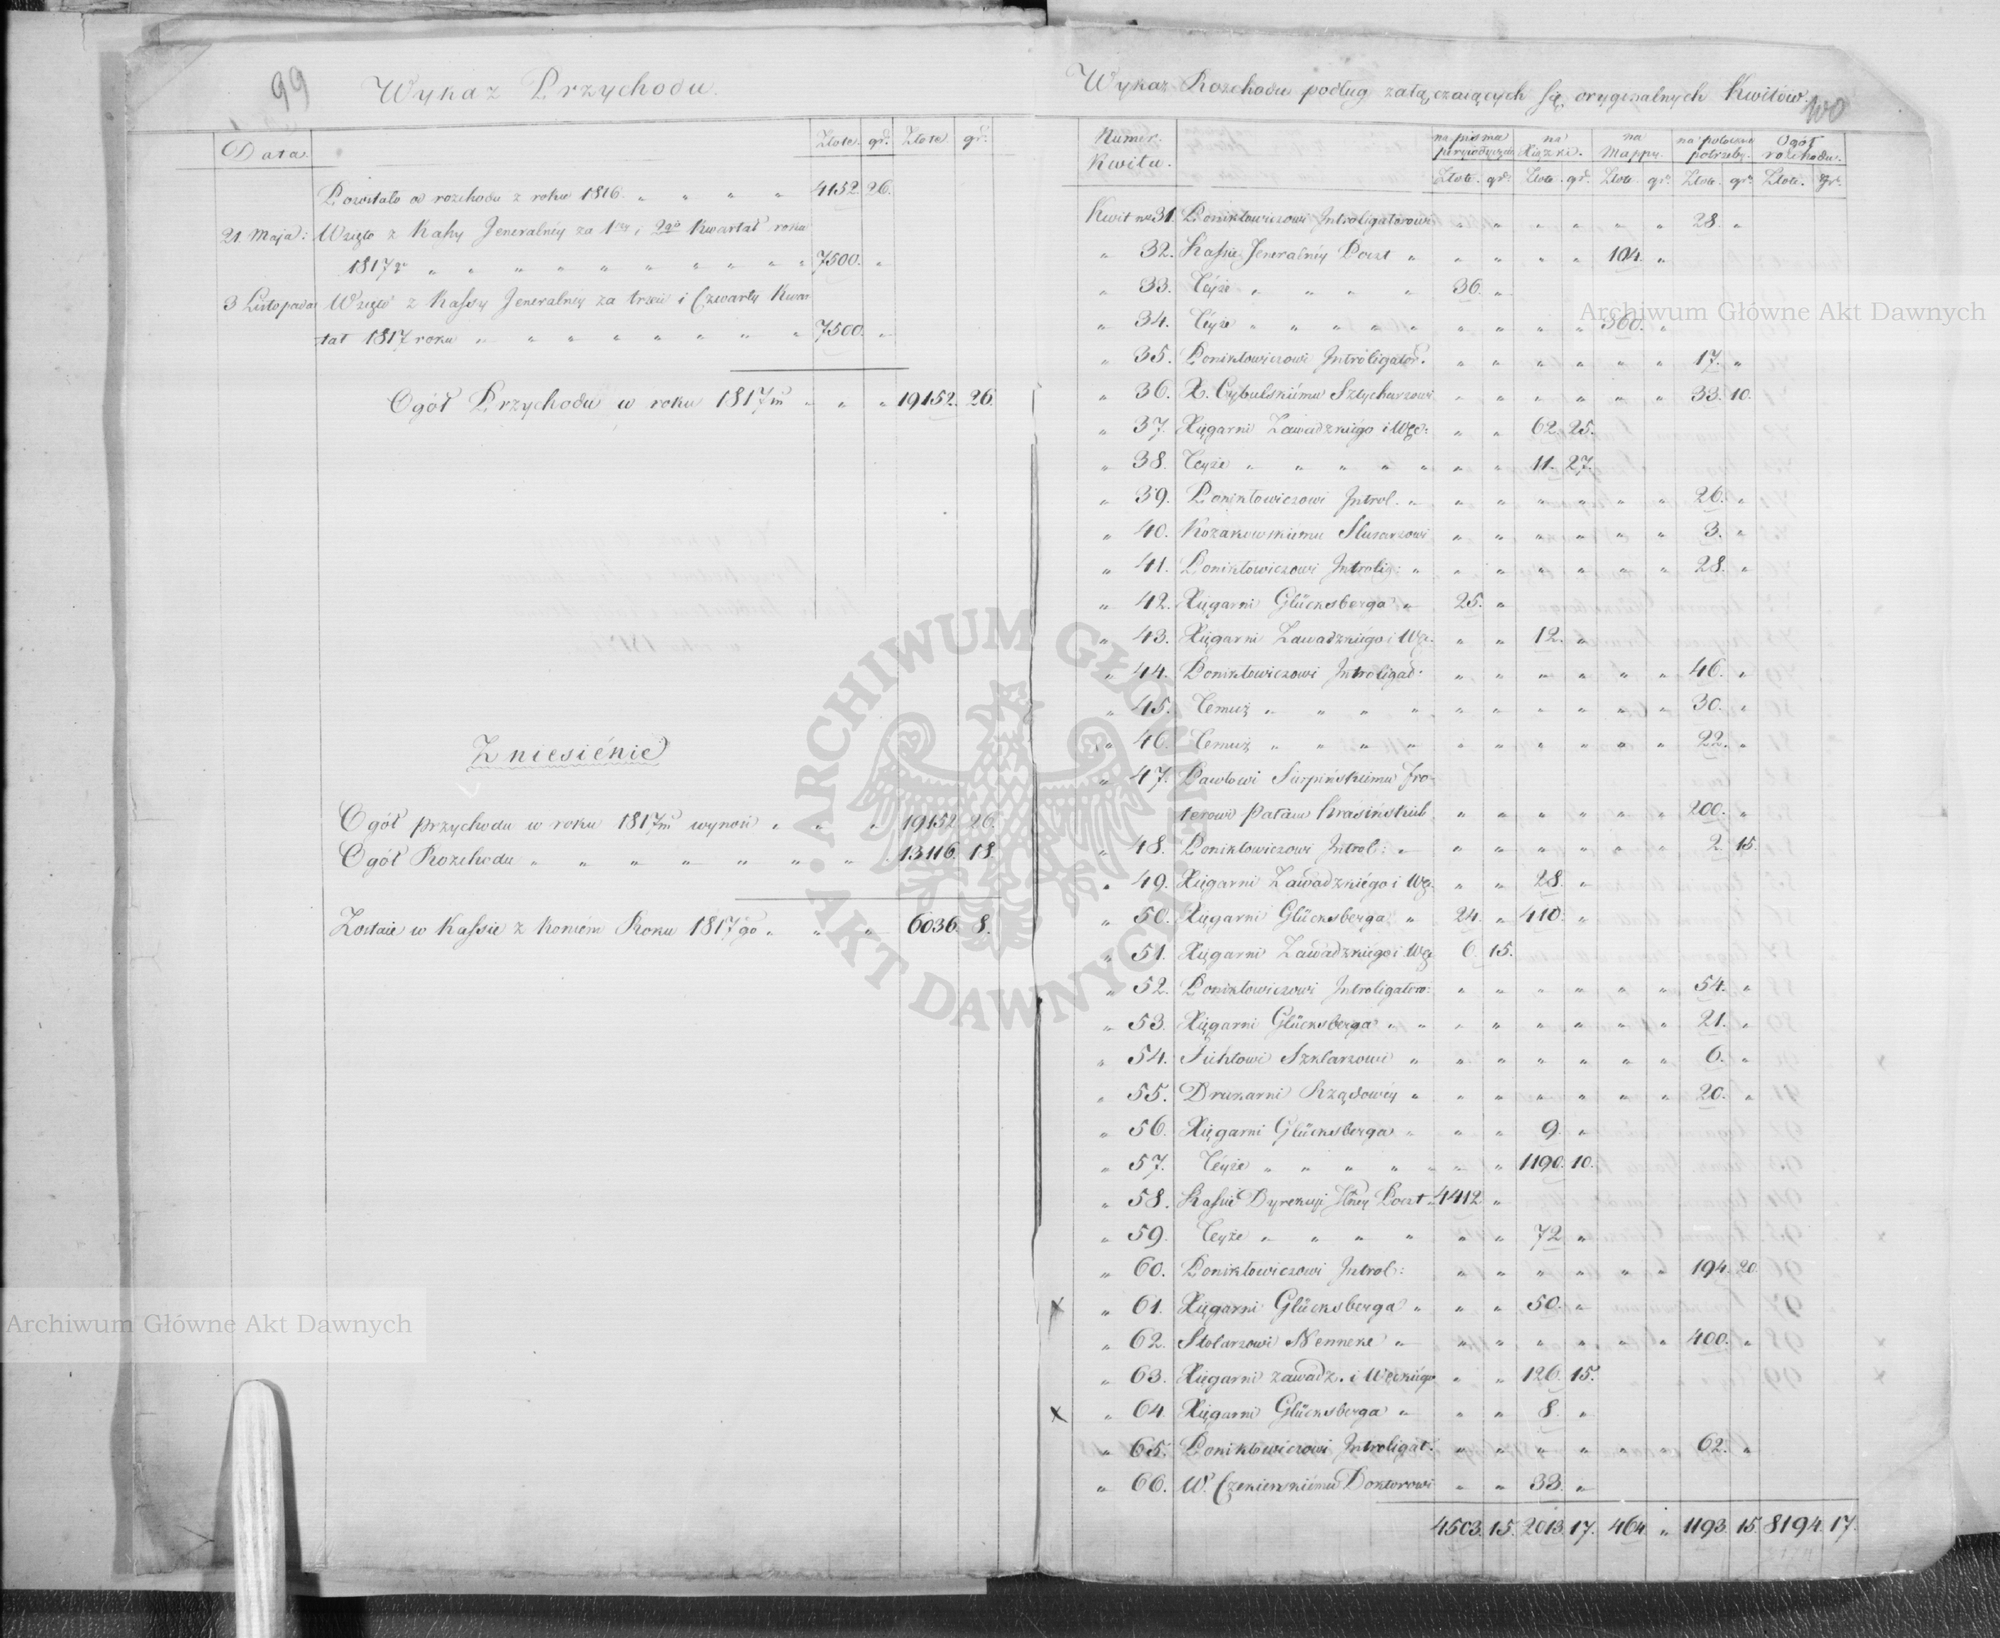 99
Wykaz Przychodu.
Data.
Złote. gr. Złote gr.
Pozostało od rozchodu z roku 1816. " " " " 4152. 26.
21. Maja: Wzięto z Kassy Jeneralnéy za 1szy i 2gi Kwartał roku
1817go " " " " " " " " " 7500. "
3 Listopada Wzięto z Kassy Jeneralney za trzeci i Czwarty Kwar
tał 1817 roku " " " " " " " " 7500. "
Ogół Przychodu w roku 1817m " " " 19152. 26.
Zniesiénie
Ogół przychodu w roku 1817m wynosi " " " 19152. 26.
Ogół Rozchodu " " " " " " " 13116. 18.
Zostaie w Kassie z koncem Roku 1817go " " " 6036. 8.
Wykaz Rozchodu podług załączaiących się oryginalnych Kwitów.
100
Numer Kwitu.
na pisma peryodyczne
na Xiążki.
na Mappy.
na potoczne potrzeby.
Ogół rozchodu.
Złote. gr. Złote gr. Złote. gr. Złote. gr. Złote. gr.
Kwit no 31. Poniktowiczowi Introligatorowi " " " " " " 28. "
" 32. Kassie Jeneralnéy Poczt " " " " " 104. "
" 33. Teyże " " " " 36. "
" 34. Téyże " " " " " " " " " 360. "
" 35. Poniktowiczowi Introligator. " " " " " " 17. "
" 36. X. Cybulskiému Sztycharzowi " " " " " " 33. 10.
" 37. Xięgarni Zawadzkiégo i Węc: " " 62. 25.
" 38. Teyże " " " " " " " 11. 27.
" 39. Poniktowiczowi Introl. " " " " " " " 26. "
" 40. Kozakowskiemu Slusarzowi " " " " " " 3. "
" 41. Poniktowiczowi Introlig: " " " " " " " 28. "
" 42. Xięgarni Glücksberga " 25. "
" 43. Xięgarni Zawadzkiégo i Wę. " " 12. "
" 44. Poniktowiczowi Introligat. " " " " " " 46. "
" 45. Temuż " " " " " " " " " " 30. "
" 46. Temuż " " " " " " " " " " 22. "
" 47. Pawłowi Sierpińskiemu Fro-
terowi Pałacu Krasińskich " " " " " " 200. "
" 48. Poniktowiczowi Introl: " " " " " " " 2. 15.
" 49. Xięgarni Zawadzkiégo i Wę. " " 28. "
" 50. Xięgarni Glücksberga " 24. " 410. "
" 51. Xięgarni Zawadzkiégo i Wę. 6. 15.
" 52. Poniktowiczowi Introligator: " " " " " " 54. "
" 53. Xięgarni Glücksberga " " " " " " " " 21. "
" 54. Szklarzowi " " " " " " " 6. "
" 55. Drukarni Rządowéy " " " " " " " 20. "
" 56. Xięgarni Glücksberga " " " 9. "
" 57. Téyże " " " " " " " 1190. 10.
" 58. Kassie Dyrekcyi Jlnéy Poczt. 4412. "
" 59. Teyże " " " " " " 72. "
" 60. Poniktowiczowi Introl: " " " " " " 194. 20.
x " 61. Xięgarni Glücksberga " " " 50. "
" 62. Stolarzowi Nenneke " " " " " " " 400. "
" 63. Xięgarni zawadz. i Węckiégo " " 126. 15.
x " 64. Xięgarni Glücksberga " " " 8. "
" 65. Poniktowiczowi Introligat: " " " " " " 62. "
" 66. W. Doktorowi " " 33. "
4503. 15. 2013. 17. 464. " 1193. 15. 8194. 17.
Archiwum Główne Akt Dawnych
Archiwum Główne Akt Dawnych
ARCHIWUM GŁÓWNE AKT DAWNYCH